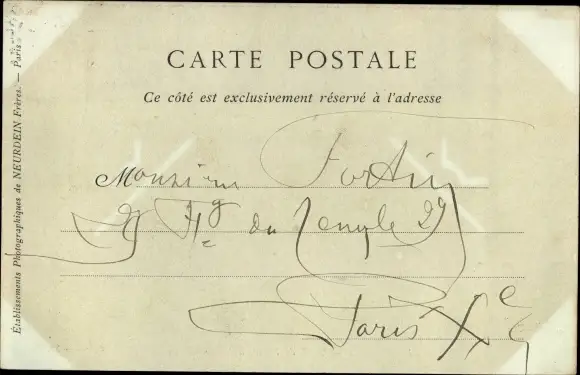 CARTE POSTALE
Ce côté est exclusivement réservé à l'adresse
Monsieur Fortin
Fg du Temple 29
Paris Xe
Établissements Photographiques de NEURDEIN Frères. — Paris